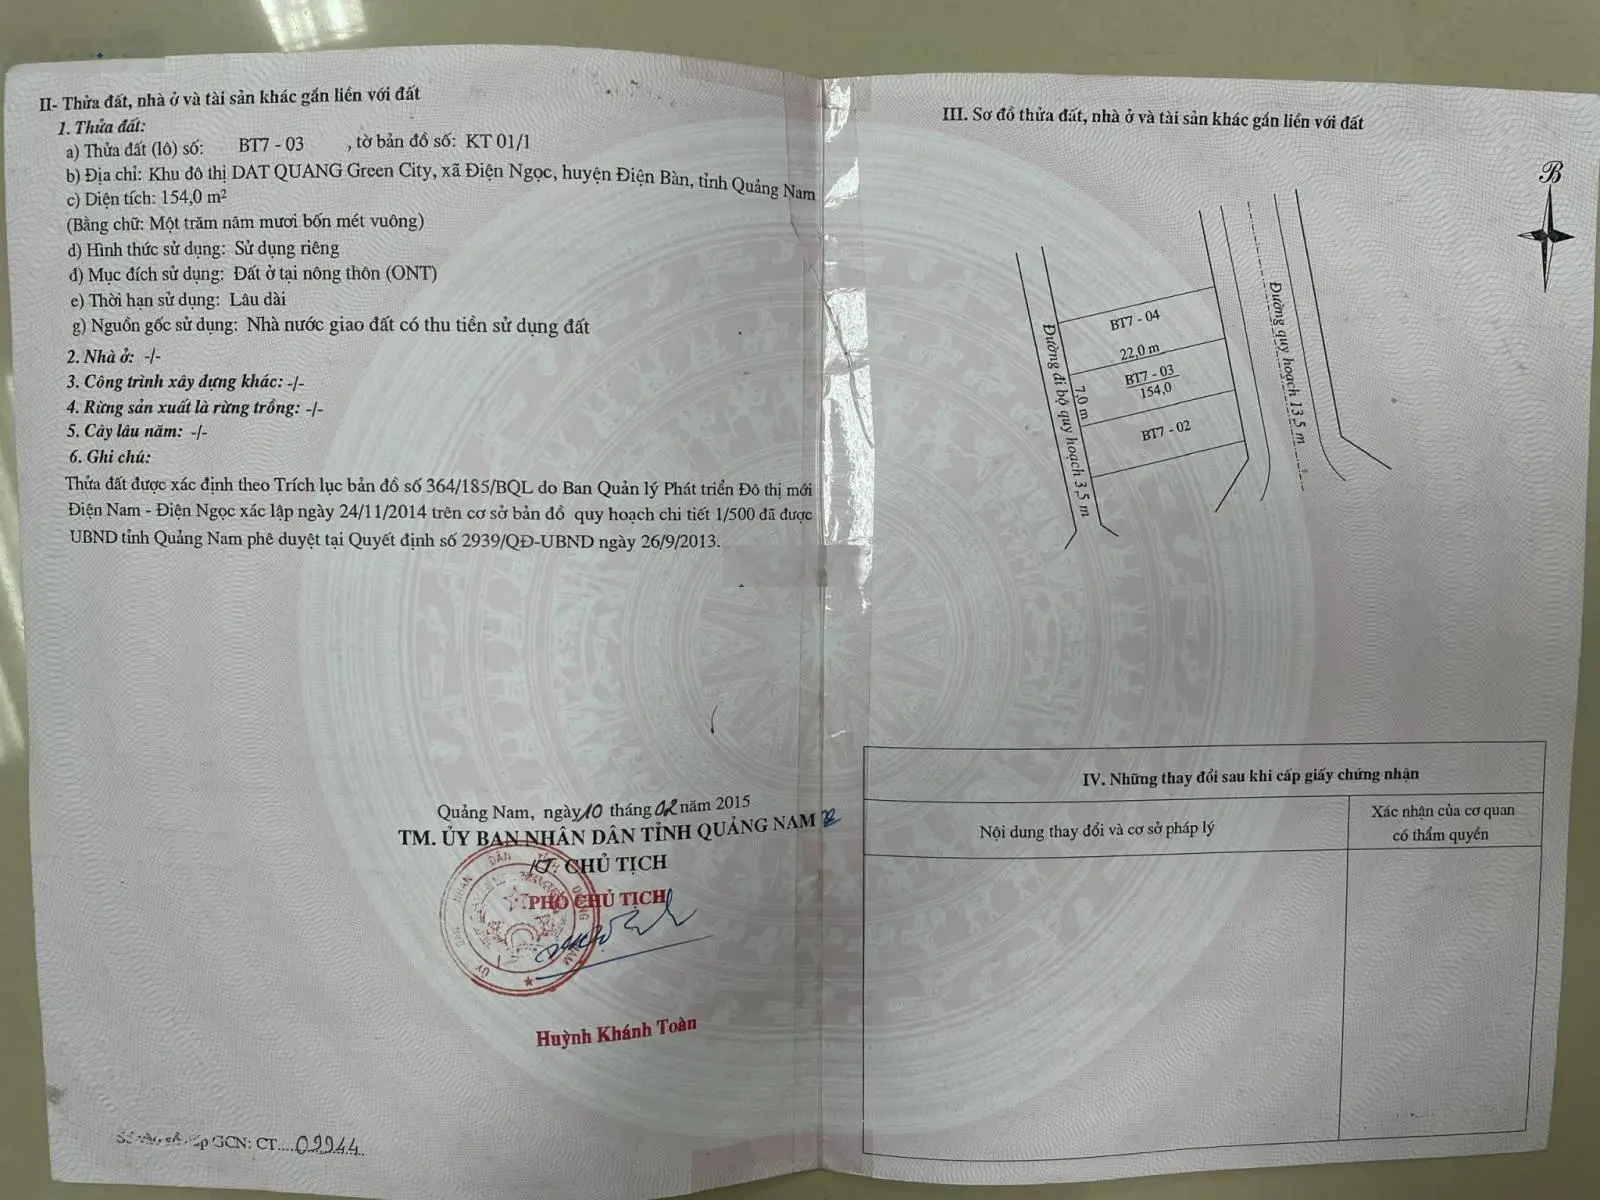 II- Thửa đất, nhà ở và tài sản khác gắn liền với đất
1. Thửa đất:
a) Thửa đất (lô) số: BT7 - 03 , tờ bản đồ số: KT 01/1
b) Địa chỉ: Khu đô thị DAT QUANG Green City, xã Điện Ngọc, huyện Điện Bàn, tỉnh Quảng Nam
c) Diện tích: 154,0 m²
(Bằng chữ: Một trăm năm mươi bốn mét vuông)
d) Hình thức sử dụng: Sử dụng riêng
đ) Mục đích sử dụng: Đất ở tại nông thôn (ONT)
e) Thời hạn sử dụng: Lâu dài
g) Nguồn gốc sử dụng: Nhà nước giao đất có thu tiền sử dụng đất
2. Nhà ở: -/-
3. Công trình xây dựng khác: -/-
4. Rừng sản xuất là rừng trồng: -/-
5. Cây lâu năm: -/-
6. Ghi chú:
Thửa đất được xác định theo Trích lục bản đồ số 364/185/BQL do Ban Quản lý Phát triển Đô thị mới
Điện Nam - Điện Ngọc xác lập ngày 24/11/2014 trên cơ sở bản đồ quy hoạch chi tiết 1/500 đã được
UBND tỉnh Quảng Nam phê duyệt tại Quyết định số 2939/QĐ-UBND ngày 26/9/2013.
Quảng Nam, ngày 10 tháng 02 năm 2015
TM. ỦY BAN NHÂN DÂN TỈNH QUẢNG NAM
KT CHỦ TỊCH
PHÓ CHỦ TỊCH
ỦY BAN NHÂN DÂN TỈNH QUẢNG NAM
Huỳnh Khánh Toàn
GCN: CT....09944
III. Sơ đồ thửa đất, nhà ở và tài sản khác gắn liền với đất
B
BT7 - 04
22,0 m
BT7 - 03
154,0
7,0 m
BT7 - 02
Đường đi bộ quy hoạch 3,5 m
Đường quy hoạch 13,5 m
IV. Những thay đổi sau khi cấp giấy chứng nhận
Nội dung thay đổi và cơ sở pháp lý
Xác nhận của cơ quan
có thẩm quyền